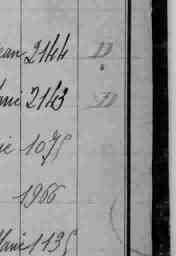 ean 2144 D
arie 2143 D
ie 1075
1966
Marie 1135